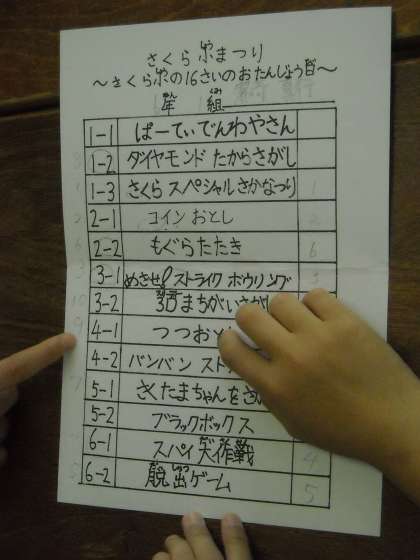 さくら小まつり
～さくら小の16さいのおたんじょう日～
年 組
1-1 ぱーてぃでんわやさん
1-2 ダイヤモンド たからさがし
1-3 さくら スペシャル さかなつり 1
2-1 コイン おとし 2
2-2 もぐらたたき 6
3-1 めざせ!ストライク ボウリング 3
3-2 3Dまちがいさがし
4-1 つつおと
4-2 バンバン スト
5-1 さくたまちゃんをさ
5-2 ブラックボックス
6-1 スパイ大作戦 4
6-2 脱出ゲーム 5